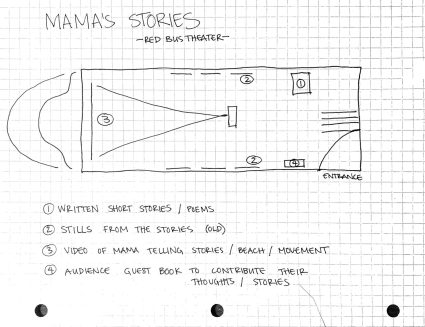 MAMA'S STORIES
-RED BUS THEATER-
2
1
3
2
4
ENTRANCE
1 WRITTEN SHORT STORIES / POEMS
2 STILLS FROM THE STORIES (OLD)
3 VIDEO OF MAMA TELLING STORIES / BEACH / MOVEMENT
4 AUDIENCE GUEST BOOK TO CONTRIBUTE THEIR
THOUGHTS / STORIES